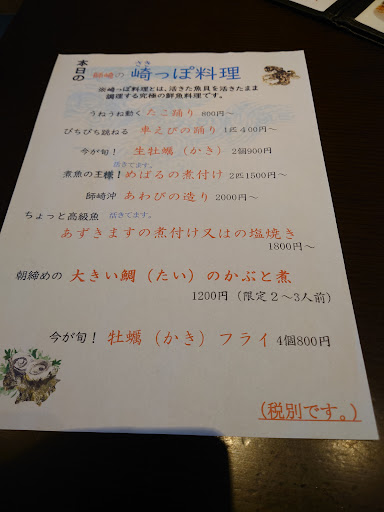 本日の 師崎の 崎っぽ料理
さき
※崎っぽ料理とは、活きた魚貝を活きたまま
調理する究極の鮮魚料理です。
うねうね動く たこ踊り 800円～
ぴちぴち跳ねる 車えびの踊り 1匹400円～
今が旬！ 生牡蠣（かき） 2個900円
活きてます。
煮魚の王様！めばるの煮付け 2匹1500円～
師崎沖 あわびの造り 2000円～
ちょっと高級魚 活きてます。
あずきますの煮付け又はの塩焼き
1800円～
朝締めの 大きい鯛（たい）のかぶと煮
1200円（限定２～3人前）
今が旬！ 牡蠣（かき）フライ 4個800円
（税別です。）